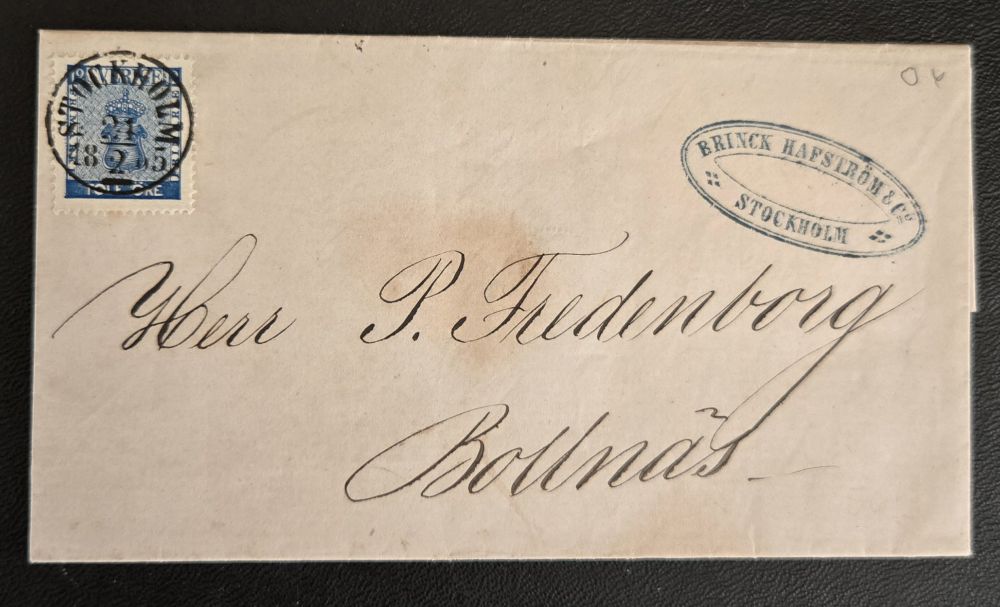 STOCKHOLM
21
2
TOLF ÖRE
BRINCK HAFSTRÖM & Cº
STOCKHOLM
Herr P. Fredenborg
Bollnäs